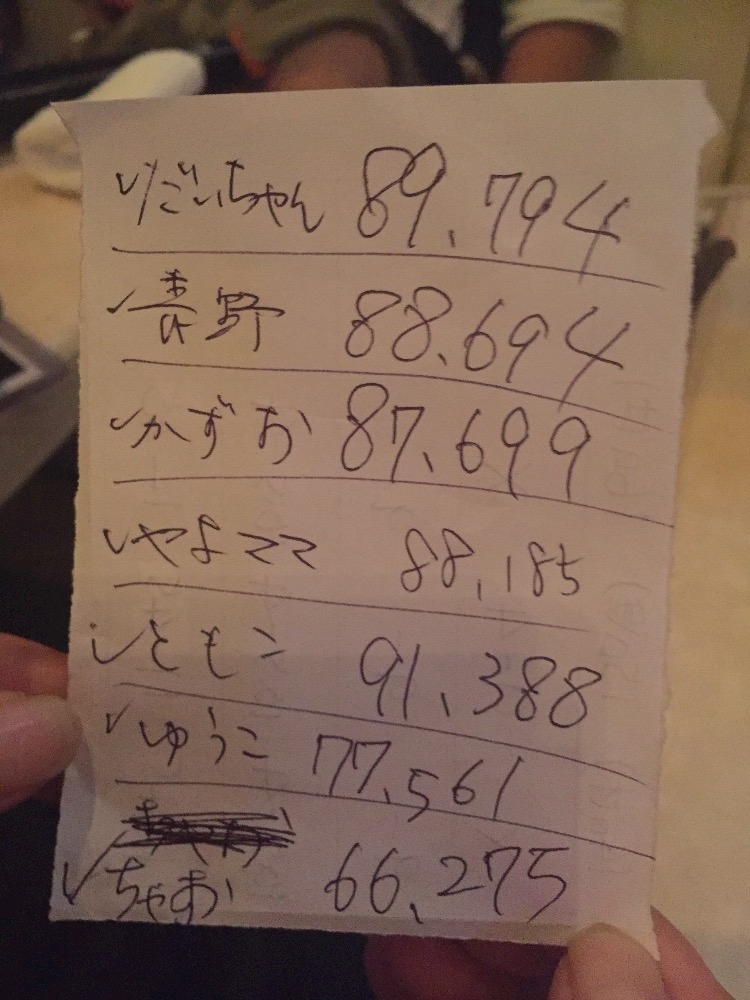 ✓だいちゃん 89.794
✓青野 88.694
✓かずお 87.699
✓やよママ 88.185
✓ともこ 91.388
✓ゆうこ 77.561
✓ちゃお 66.275